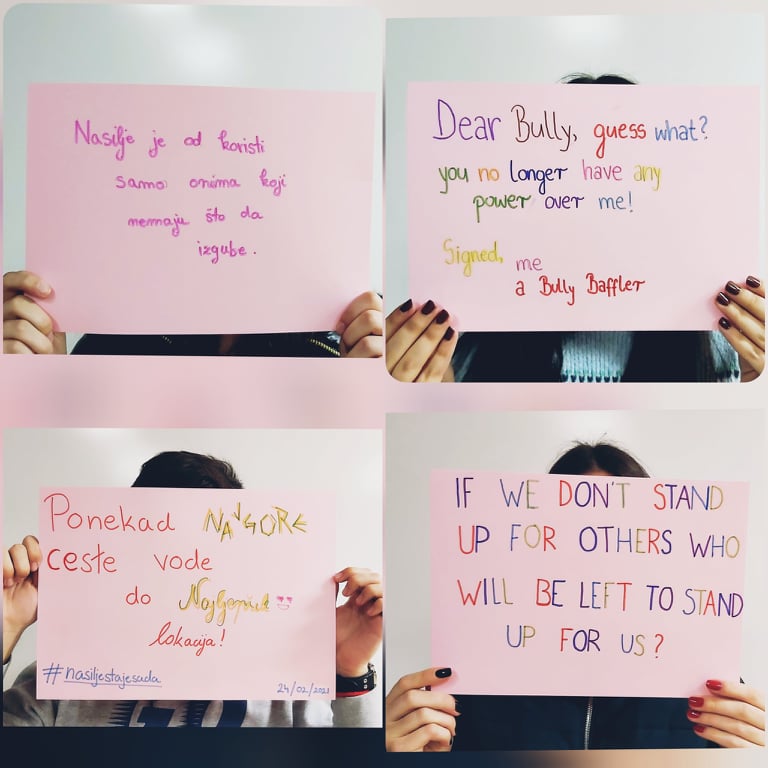 Nasilje je od koristi
samo onima koji
nemaju što da
izgube.
Dear Bully, guess what?
you no longer have any
power over me!
Signed, me
a Bully Baffler
Ponekad NAJGORE
ceste vode
do Najljepših
lokacija!
#nasiljestajesada
24/02/2021
IF WE DON'T STAND
UP FOR OTHERS WHO
WILL BE LEFT TO STAND
UP FOR US?